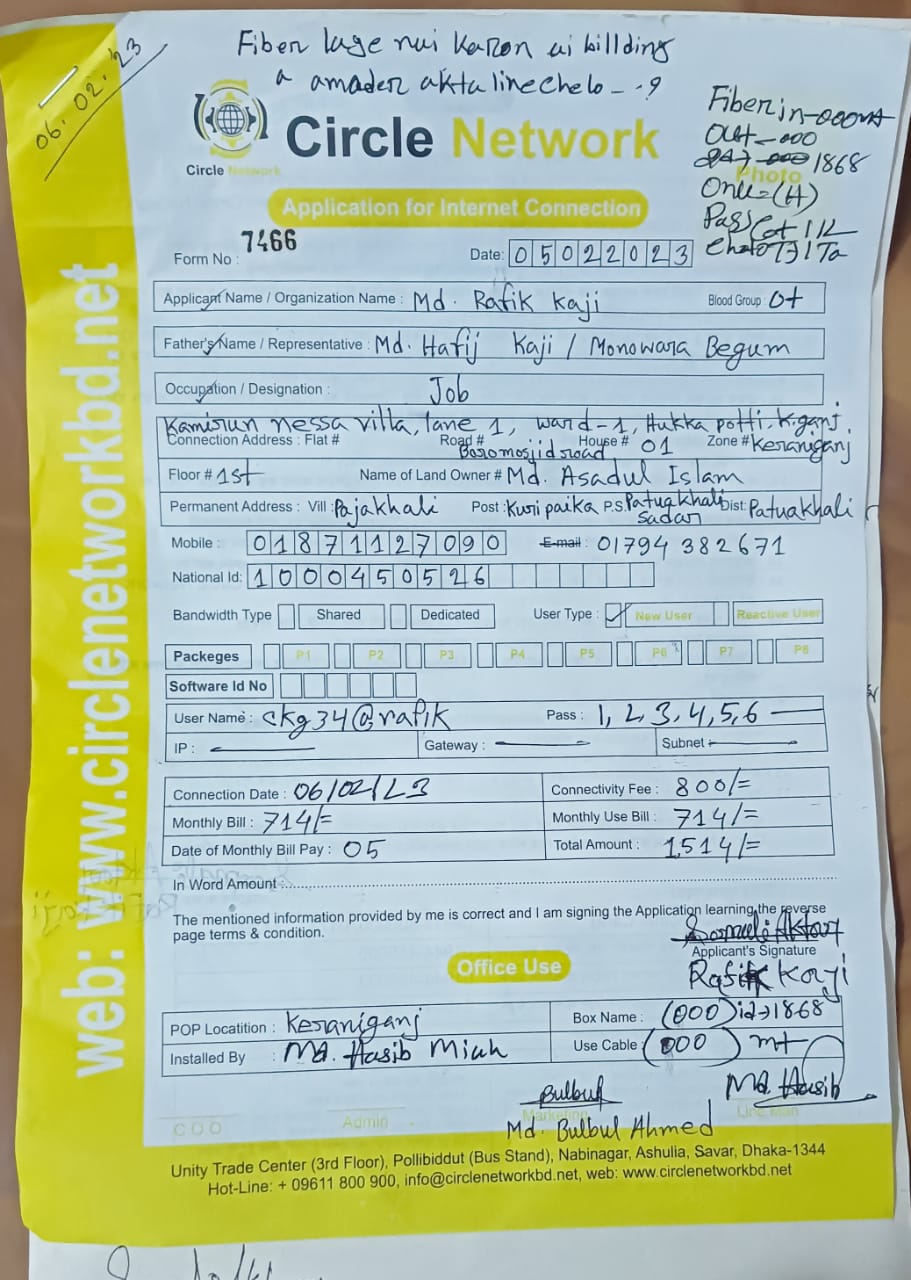 Fiber lage nui karon ai billding
a amader akta line chelo - - 9
06.02.'23
Circle Network
Circle Network
Fiber in-000
Out-000
1868
Photo
Onu=(H)
Application for Internet Connection
Form No : 7466
Date: 05022023
Applicant Name / Organization Name : Md. Rafik Kaji Blood Group : O+
Father's Name / Representative : Md. Hafij Kaji / Monowara Begum
Occupation / Designation : Job
Kamirun nessa villa, lane 1, ward-1, Hukka potti, K.ganj
Connection Address : Flat # Road # Boromosjid road House # 01 Zone # Keraniganj
Floor # 1st Name of Land Owner # Md. Asadul Islam
Permanent Address : Vill : Pajakhali Post : Kuri paika P.S. Patuakhali Sadar Dist: Patuakhali
Mobile : 01871127090 E-mail : 01794 382671
National Id: 1000450526
Bandwidth Type Shared Dedicated User Type : New User Reactive User
Packeges P1 P2 P3 P4 P5 P6 P7 P8
Software Id No
User Name : ckg34@rafik Pass : 1,2,3,4,5,6
IP : Gateway : Subnet :
Connection Date : 06/02/23 Connectivity Fee : 800/=
Monthly Bill : 714/= Monthly Use Bill : 714/=
Date of Monthly Bill Pay : 05 Total Amount : 1514/=
In Word Amount :
The mentioned information provided by me is correct and I am signing the Application learning the reverse
page terms & condition.
Applicant's Signature
Rafik Kaji
Office Use
POP Locatition : Keraniganj Box Name : (000) id→1868
Installed By : Md. Hasib Miah Use Cable : (000) mt
Bulbul Md. Hasib
C O O Admin Marketing Line Man
Md. Bulbul Ahmed
Unity Trade Center (3rd Floor), Pollibiddut (Bus Stand), Nabinagar, Ashulia, Savar, Dhaka-1344
Hot-Line: + 09611 800 900, info@circlenetworkbd.net, web: www.circlenetworkbd.net
web: www.circlenetworkbd.net